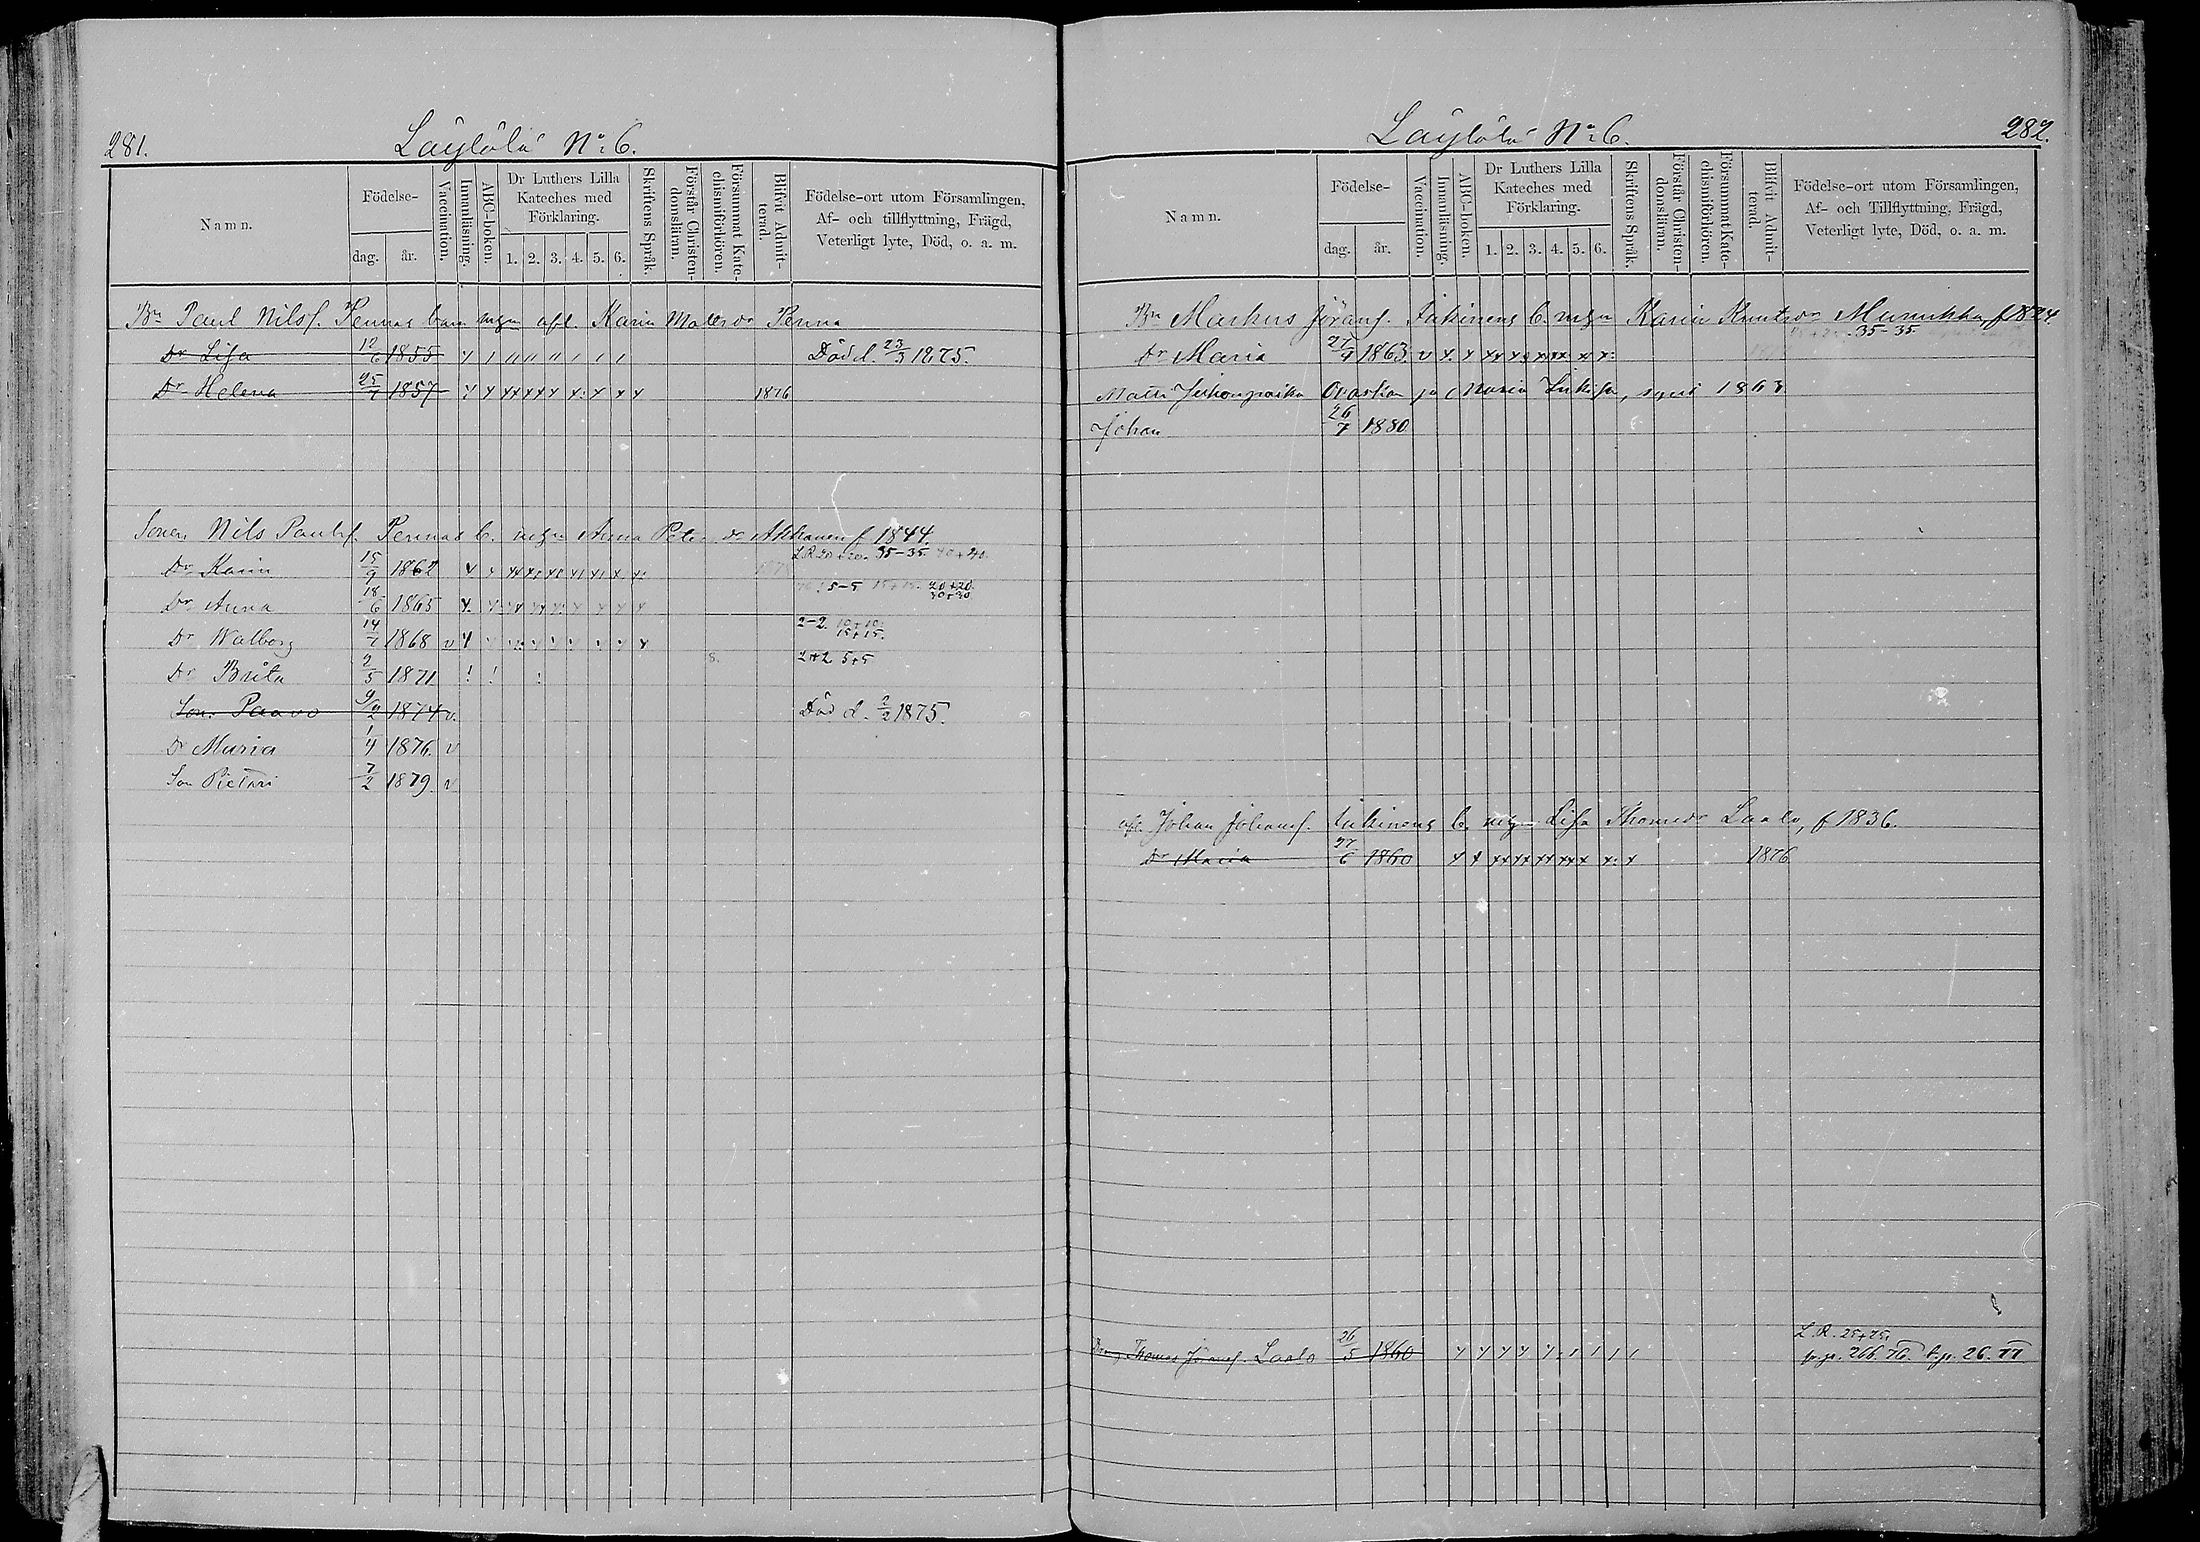 281.
Läylölä No 6.
Namn.
Födelse-
dag.
år.
Vaccination.
Innanläsning.
ABC-boken.
Dr Luthers Lilla
Kateches med
Förklaring.
1. 2. 3. 4. 5. 6.
Skriftens Språk.
Förstår Christen-
domsläran.
Försummat Kate-
chismiförhören.
Blifvit Admit-
terad.
Födelse-ort utom Församlingen,
Af- och tillflyttning, Frägd,
Veterligt lyte, Död, o. a. m.
Bn Paul Nilsf. Pennas barn m afl. Karin Penna
Dr Lisa 12/6 1855 Död d. 23/3 1875.
Dr Helena 25/7 1857 1876
Sonen Nils Paulsf. Pennas b. m Anna f 1844.
35-35. 40+40.
Dr Karin 15/9 1862
5-5 15+15. 20+20.
30+30
Dr Anna 18/6 1865
2-2. 10+10.
15+15.
Dr Walborg 14/7 1868 v
2+2 5+5
Dr Brita 2/5 1871
Son Paavo 9/2 1874 v. Död d. 2/2 1875.
Dr Maria 1/4 1876. v
Son Pietari 7/2 1879. v
282.
Läylölä No 6.
Namn.
Födelse-
dag.
år.
Vaccination.
Innanläsning.
ABC-boken.
Dr Luthers Lilla
Kateches med
Förklaring.
1. 2. 3. 4. 5. 6.
Skriftens Språk.
Förstår Christen-
domsläran.
Försummat Kate-
chismiförhören.
Blifvit Admit-
terad.
Födelse-ort utom Församlingen,
Af- och Tillflyttning, Frägd,
Veterligt lyte, Död, o. a. m.
Bn Markus Göransf. b. m Karin Munukka, f 1824.
35-35
Dr Maria 21/9 1863. v
Matti Juhonpoika Ovaskan ja Maria 1863
Johan 26/7 1880
afl. Johan Johansf. b. m Lisa Thomasdr Laalo, f 1836.
Dr Maria 27/6 1860 1876
L. R. 25+25.
Dreng Thomas Laalo 26/5 1860 fr. p. 266. 76. t. p. 26. 77